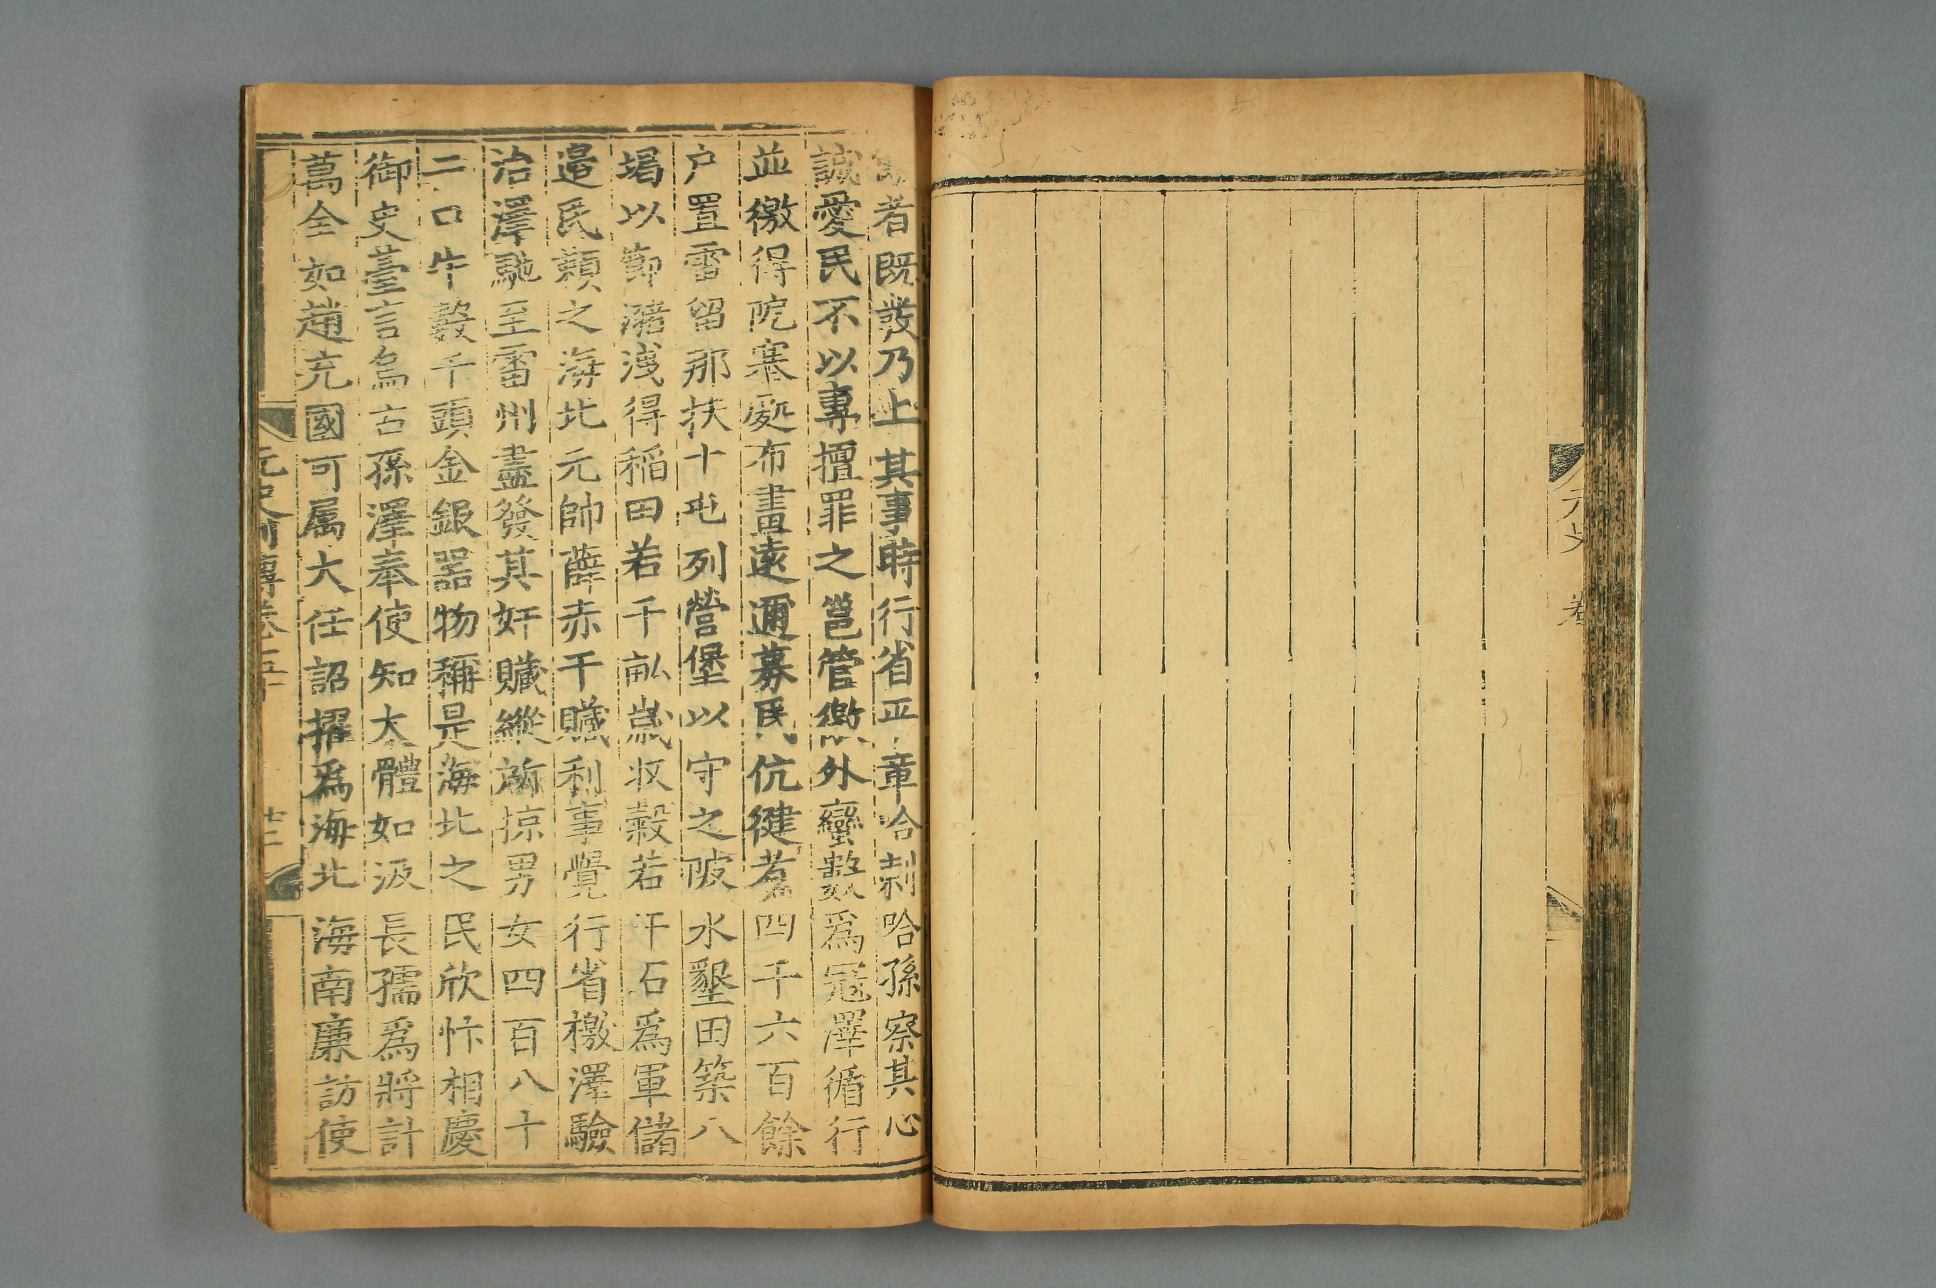 元史 卷
者既發乃止其事時行省平章哈剌哈孫察其心
誠愛民不以專擅罪之邕管徼外蠻數爲寇澤循行
並徼得阨塞處布畫遠邇募民伉健者四千六百餘
户置雷留那扶十屯列營堡以守之陂水墾田築八
堨以節瀦洩得稻田若干畝歳収穀若干石爲軍儲
邉民頼之海北元帥薛赤干贓利事覺行省檄澤驗
治澤馳至雷州盡發其奸贓縱所掠男女四百八十
二口牛數千頭金銀器物稱是海北之民欣忭相慶
御史臺言烏古孫澤奉使知大體如汲長孺爲將計
萬全如趙充國可属大任詔擢爲海北海南廉訪使
元史列傳卷五十 廿二